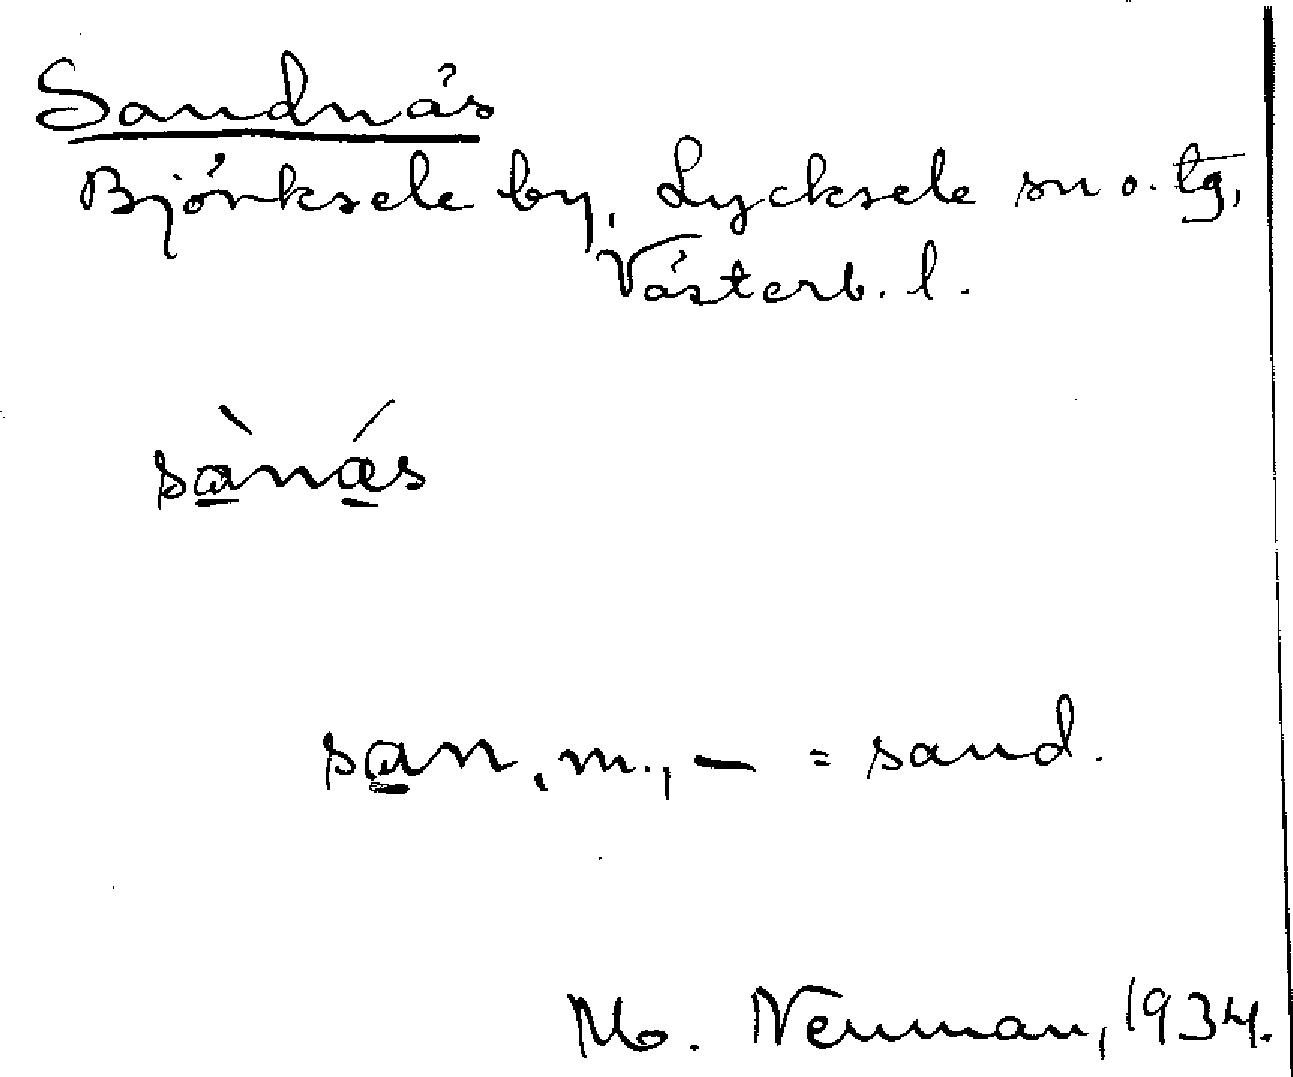 Sandnäs
Björksele by, Lycksele sn o. tg,
Västerb. l.
sànás
san, m., — = sand.
Mo. Neuman, 1934.